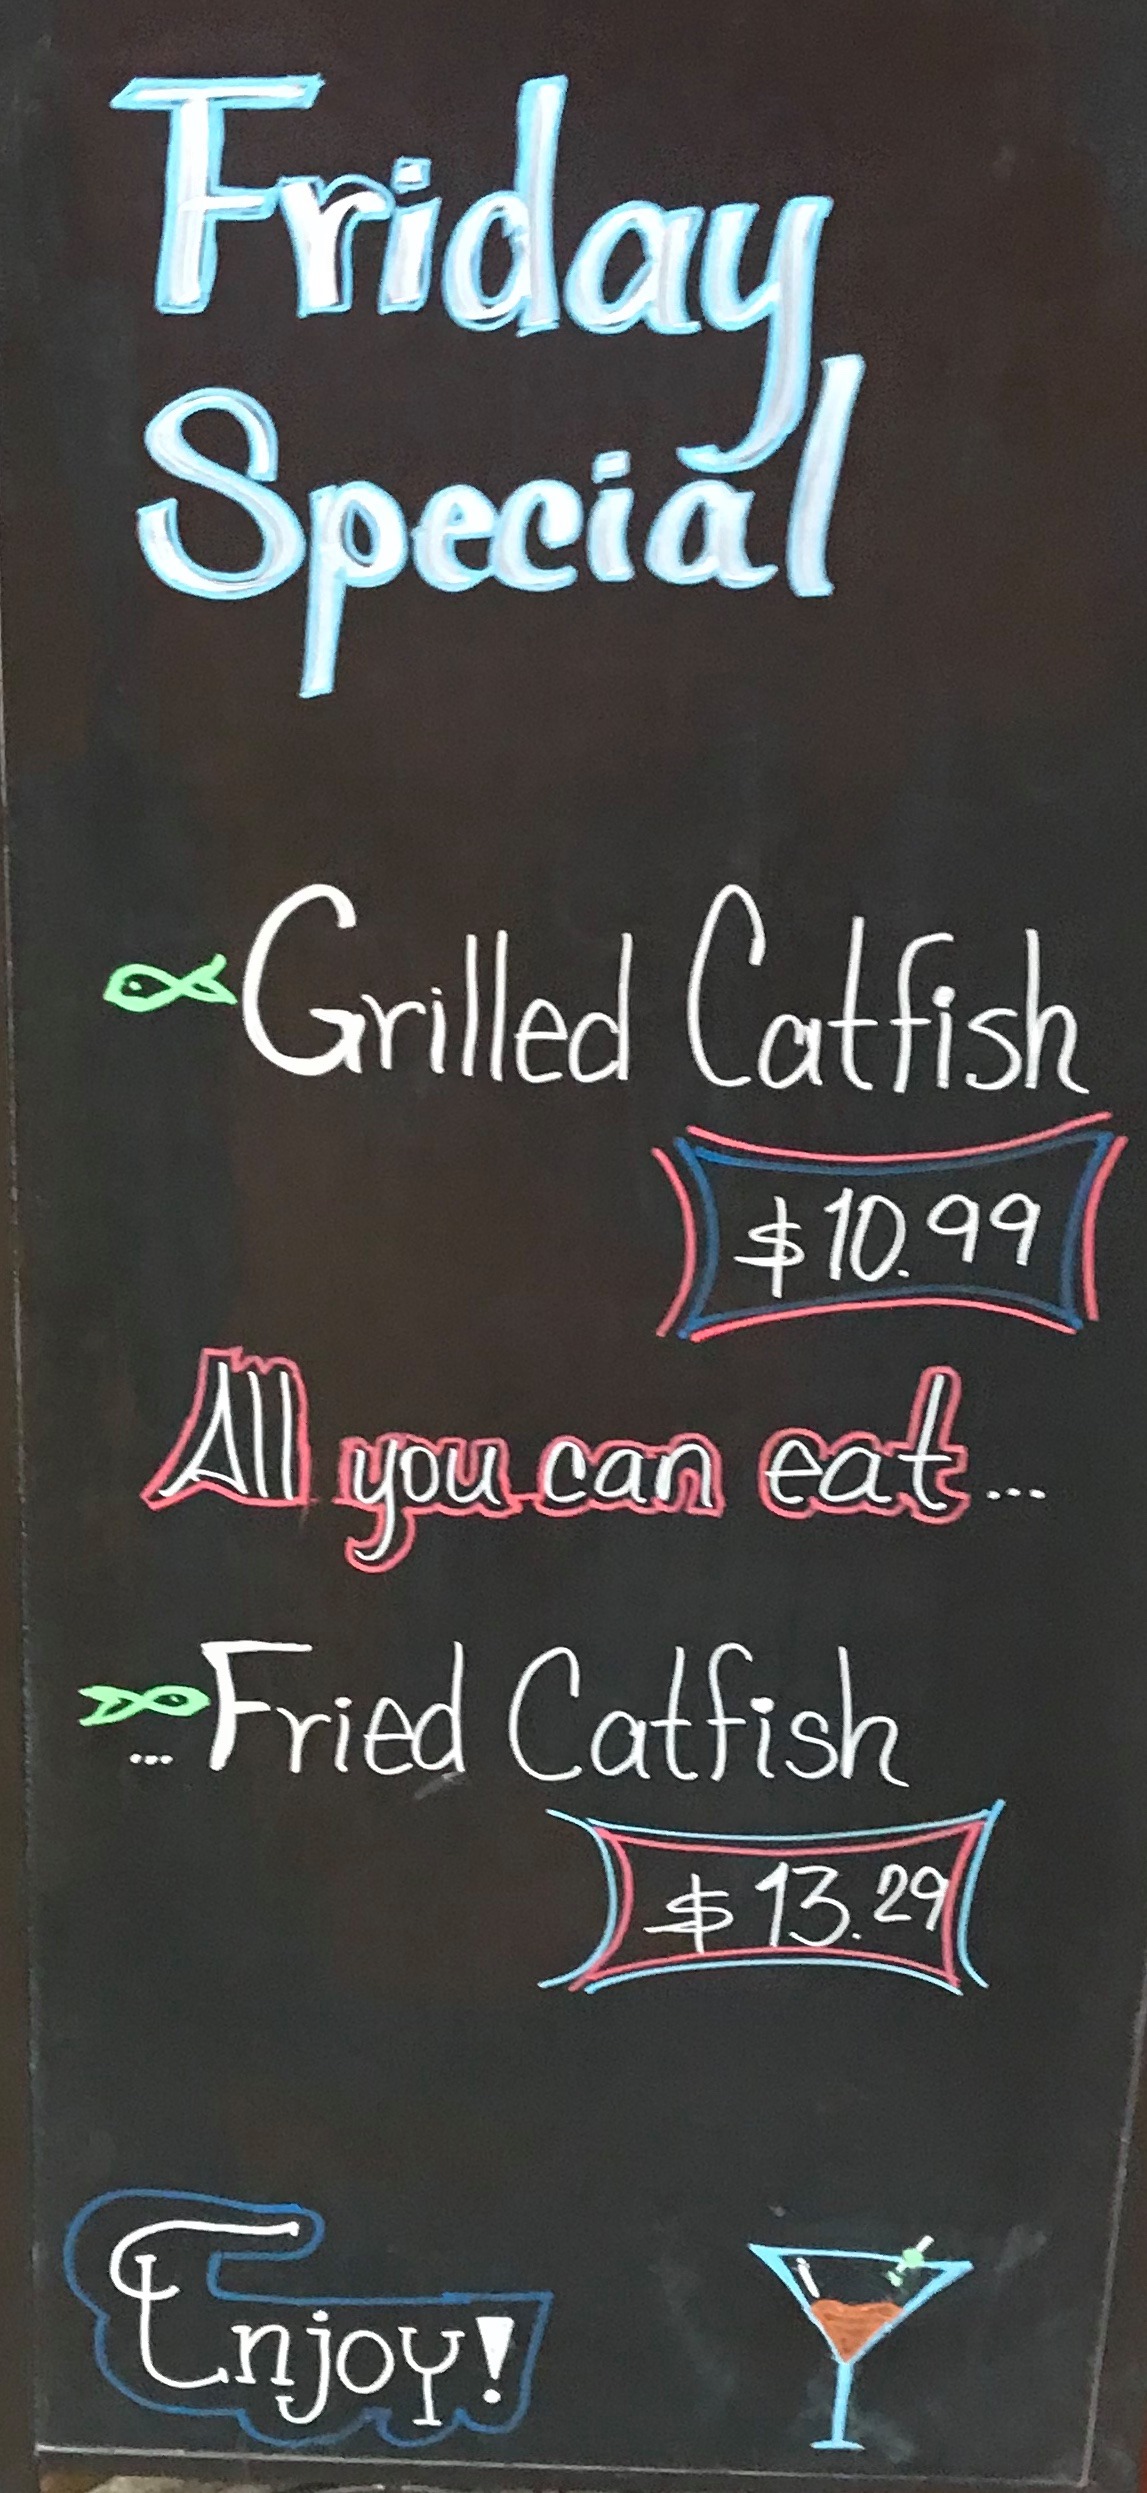 Friday
Special
Grilled Catfish
$10.99
All you can eat...
...Fried Catfish
$13.29
Enjoy!